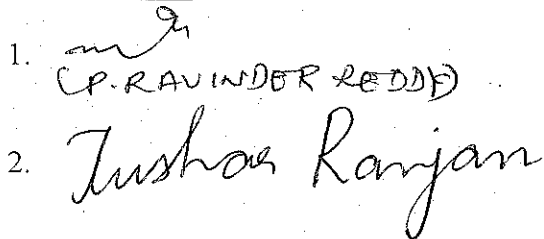 1.
(P. RAVINDER REDDY)
2. Tushar Ranjan